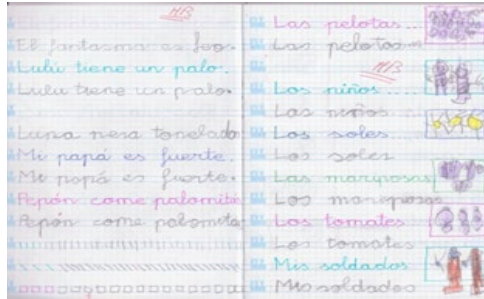 MB
El fantasma es feo.
Lulú tiene un palo.
Lulu tiene un palo.
Luisa tonelado
Mi papá es fuerte.
Mi papá es fuerte.
Pepón come palomita
Pepón come palomita
Las pelotas...
Las pelotas
MB
Los niños
Los niños
Los soles
Los soles
Las mariposas
Las mariposas
Los tomates
Los tomates
Mis soldados
Mis soldados